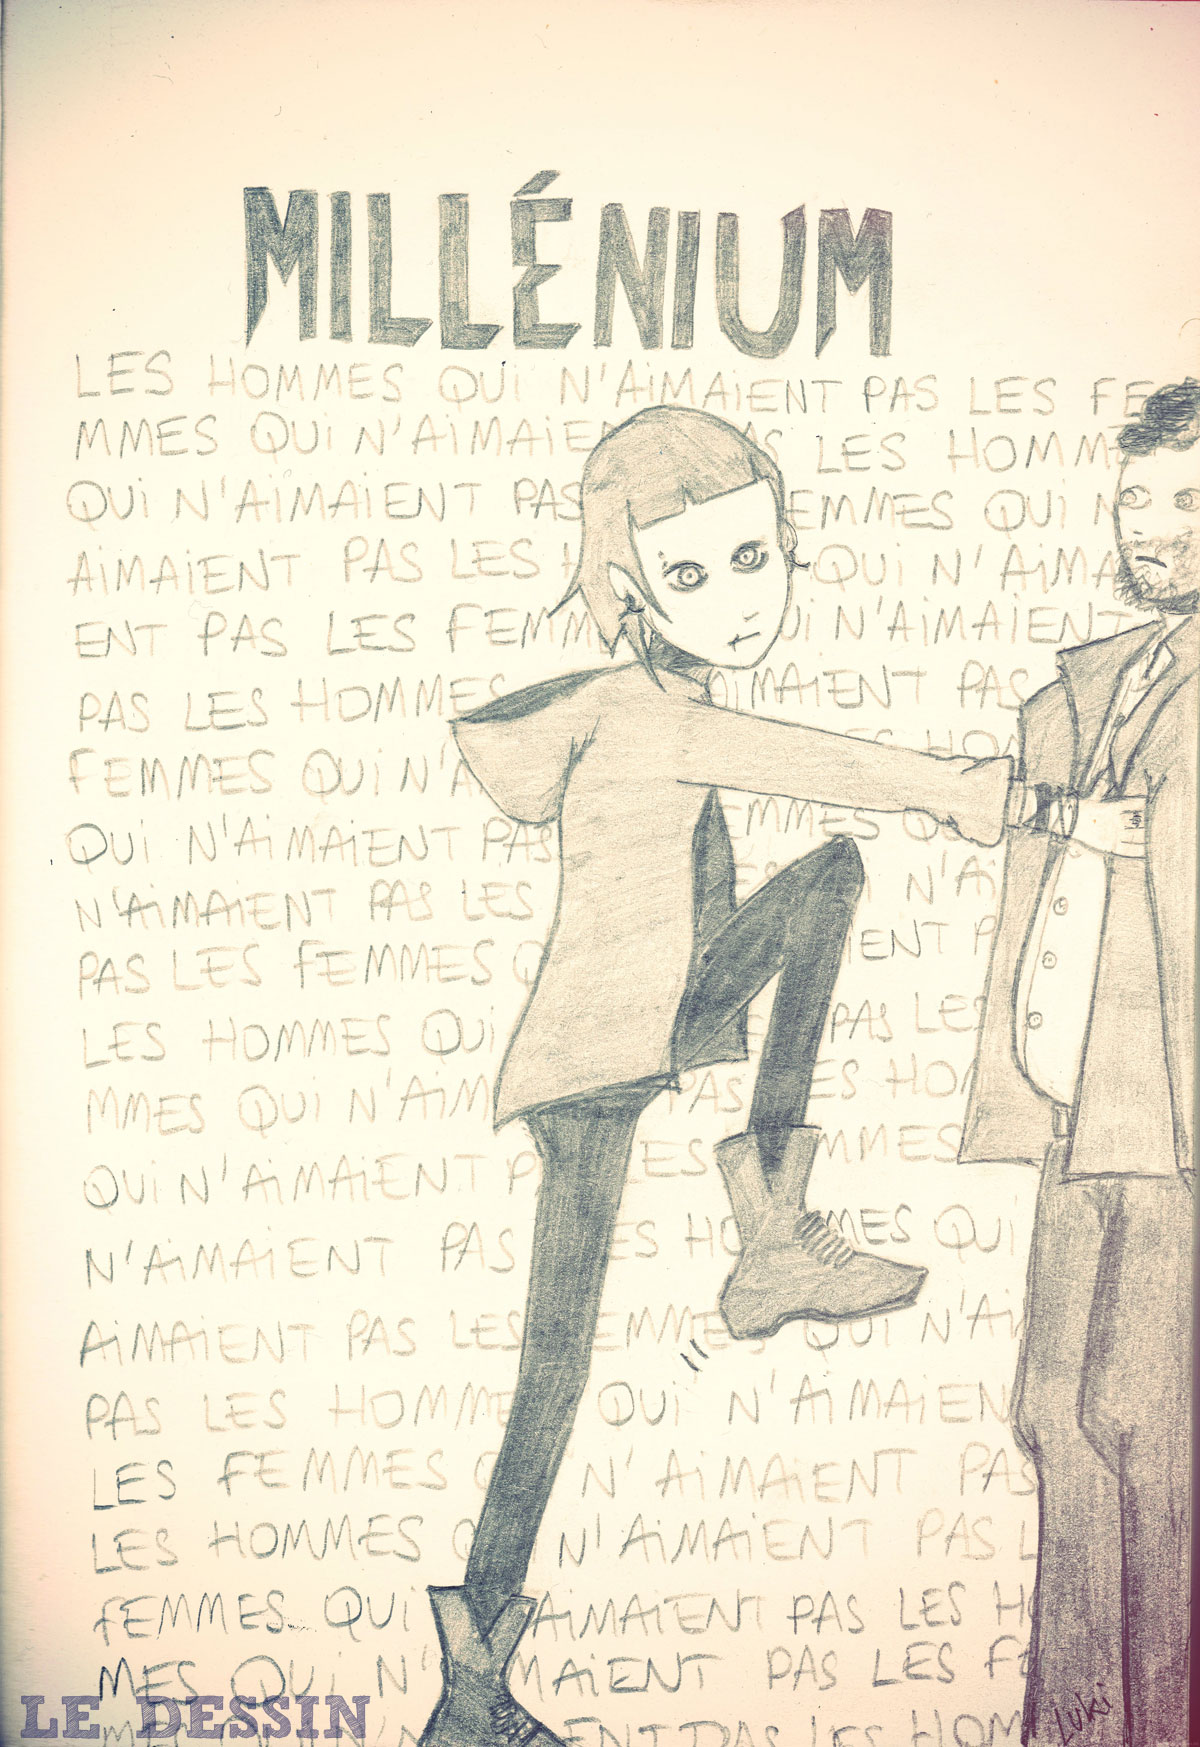 MILLÉNIUM
LES HOMMES QUi N'AiMAiENT PAS LES FE
MMES QUi N'AiMAiE PAS LES HOMM
QUi N'AiMAiENT PAS FEMMES QUi N'
AiMAiENT PAS LES H QUi N'AiMA
ENT PAS LES FEMM QUi N'AiMAiENT
PAS LES HOMMES AiMAiENT PAS
FEMMES QUi N'A LES HOM
QUi N'AiMAiENT PAS FEMMES QU
N'AiMAiENT PAS LES ES N'Ai
PAS LES FEMMES Q iENT P
LES HOMMES QUi PAS LES
MMES QUi N'AiM PAS LES HOM
QUi N'AiMAiENT P LES MMES
N'AiMAiENT PAS LES HO MMES QUi
AiMAiENT PAS LES FEMMES QUi N'Ai
PAS LES HOMME QUi N'AiMAiEN
LES FEMMES Q N'AiMAiENT PAS
LES HOMMES Q N'AiMAiENT PAS L
FEMMES QUi AiMAiENT PAS LES HO
MES QUi N' MAiENT PAS LES FE
ENT PAS LES HOM
LE DESSIN
Luki